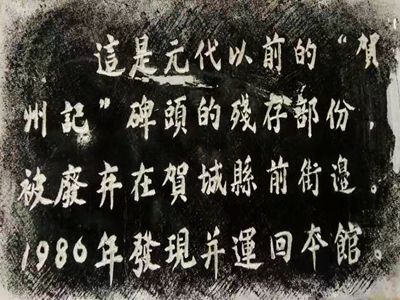 這是元代以前的“賀
州記”碑頭的殘存部份，
被廢弃在賀城縣前街邊。
1986年發現并運回本館。